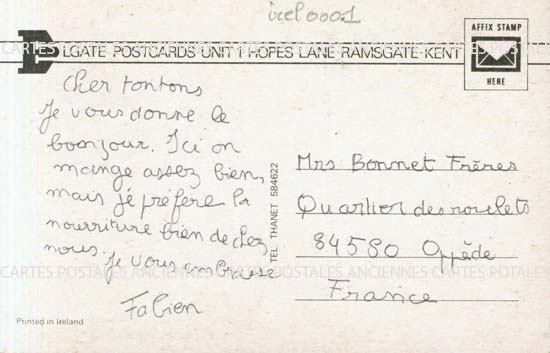 irel0001
AFFIX STAMP
HERE
LGATE POSTCARDS UNIT 1 HOPES LANE RAMSGATE KENT
CARTES POSTALES ANCIENNES CARTES POTALES
cher tontons
Je vous donne le
bonjour. Ici on
mange assez bien,
mais jé préfère la
nourriture bien de chez
nous.
Je vous embrasse
Fabien
TEL. THANET 584622
Mrs Bonnet Frères
Quartier des roulets
84580 Oppède
France
CARTES POSTALES ANCIENNES CARTES POSTALES ANCIENNES CARTES POTALES
Printed in Ireland